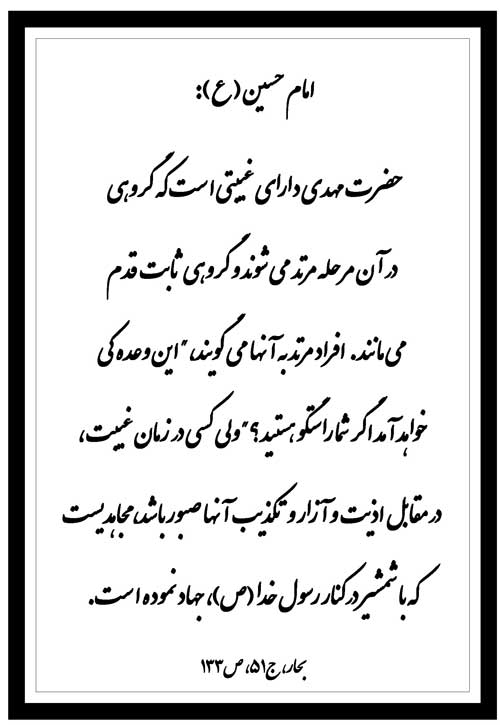 امام حسین (ع):
حضرت مهدی دارای غیبتی است که گروهی
در آن مرحله مرتد می شوند و گروهی ثابت قدم
می مانند. افراد مرتد به آنها می گویند، "این وعده کی
خواهد آمد اگر شما راستگو هستید؟" ولی کسی در زمان غیبت،
در مقابل اذیت و آزار و تکذیب آنها صبور باشد، مجاهدیست
که با شمشیر در کنار رسول خدا (ص)، جهاد نموده است.
بحار، ج۵۱، ص۱۳۳